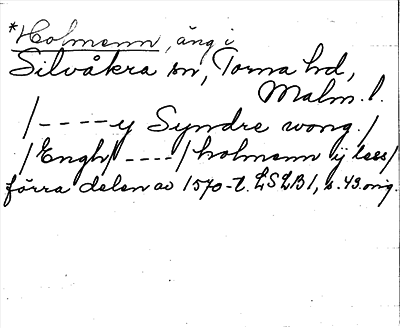 *Holmenn, äng i
Silvåkra sn, Torna hd,
Malm. l.
/----y Syndre wong./
/Engh/----/holmenn ij less/
förra delen av 1570-t. LSLB 1, s. 43. orig.